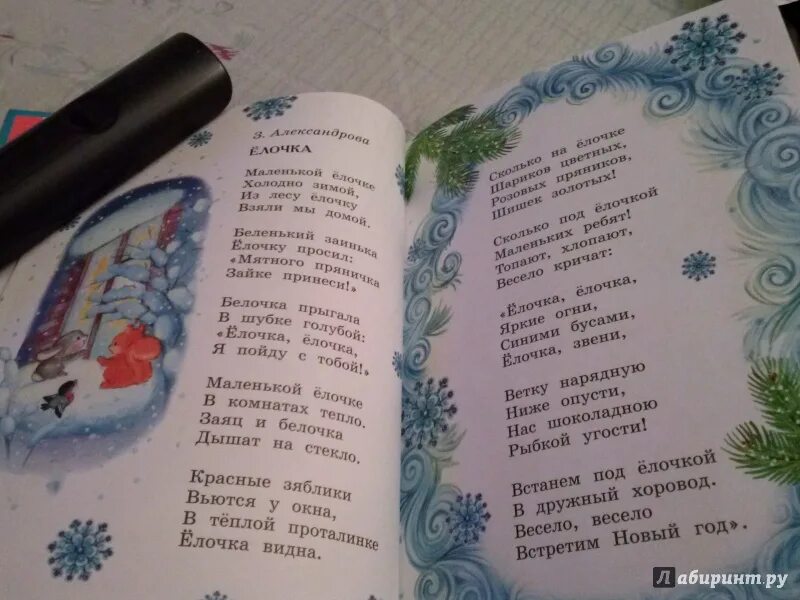 З. Александрова
ЁЛОЧКА
Маленькой ёлочке
Холодно зимой,
Из лесу ёлочку
Взяли мы домой.
Беленький заинька
Ёлочку просил:
«Мятного пряничка
Зайке принеси!»
Белочка прыгала
В шубке голубой:
«Ёлочка, ёлочка,
Я пойду с тобой!»
Маленькой ёлочке
В комнатах тепло.
Заяц и белочка
Дышат на стекло.
Красные зяблики
Вьются у окна,
В тёплой проталинке
Ёлочка видна.
Сколько на ёлочке
Шариков цветных,
Розовых пряников,
Шишек золотых!
Сколько под ёлочкой
Маленьких ребят!
Топают, хлопают,
Весело кричат:
«Ёлочка, ёлочка,
Яркие огни,
Синими бусами,
Ёлочка, звени,
Ветку нарядную
Ниже опусти,
Нас шоколадною
Рыбкой угости!
Встанем под ёлочкой
В дружный хоровод.
Весело, весело
Встретим Новый год».
Лабиринт.ру